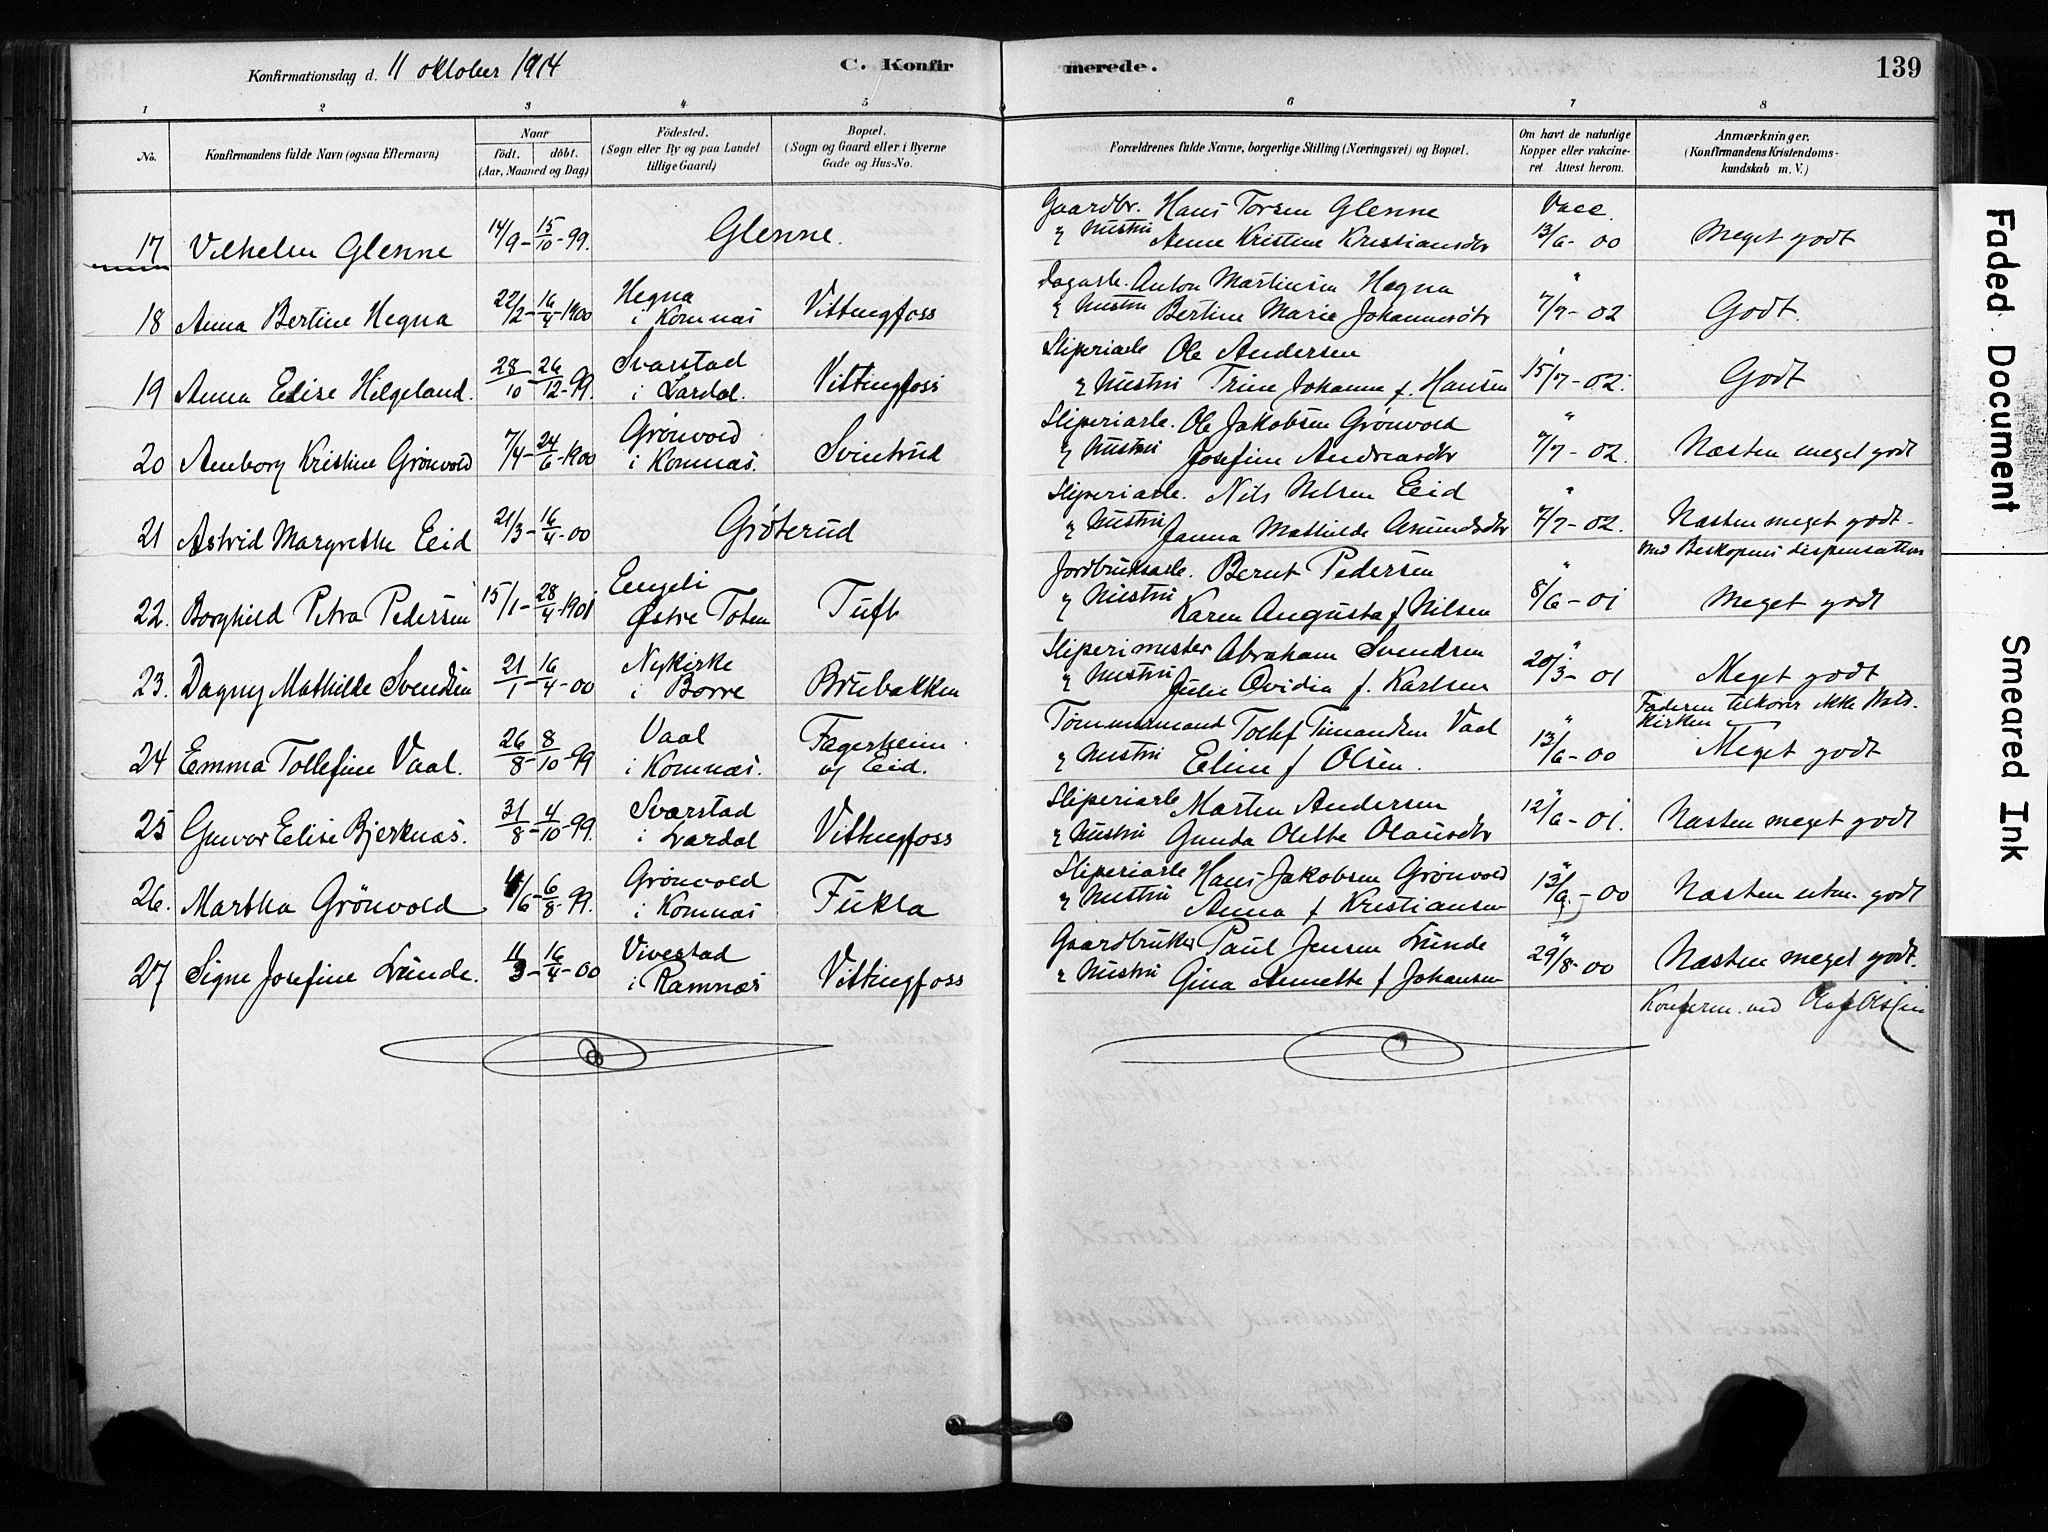 Konfirmationsdag d. 11 oktober 1914
C. Konfir
merede.
139
1 2 3 4 5 6 7 8
No.
Konfirmandens fulde Navn (ogsaa Efternavn)
Naar
födt. döbt.
(Aar, Maaned og Dag)
Födested.
(Sogn eller By og paa Landet
tillige Gaard)
Bopæl.
(Sogn og Gaard eller i Byerne
Gade og Hus-No.
Forældrenes fulde Navne, borgerlige Stilling (Næringsvei) og Bopæl.
Om havt de naturlige
Kopper eller vakcine-
ret Attest herom.
Anmærkninger.
(Konfirmandens Kristendoms-
kundskab m. V.)
Gaardbr. Hans Torsen Glenne Vacc.
17 Vilhelm Glenne 14/9 - 15/10 - 99. Glenne. & Hustru Anne Kristine Kristiansdtr 13/6 - 00 Meget godt
Hegna Dagarb. Anton Martinsen Hegna "
18 Anna Bertine Hegna 22/2 - 16/4 - 1900 i Komnæs Vittingfoss & Hustru Bertine Marie Johannesdtr 7/7 - 02 Godt.
Svarstad Sliperiarb Ole Andersen "
19 Anna Elise Helgeland. 28/10 - 26/12 - 99. i Lardal. Vittingfoss & Hustru Trine Johanne f. Hansen 15/7 - 02. Godt
Grönvold Sliperiarb. Ole Jakobsen Grönvold "
20 Anborg Kristine Grönvold 7/4 - 24/6 - 1900 i Komnæs. Svintrud & Hustru Josefine Andreasdtr 7/7 - 02. Næsten meget godt
Sliperiarb. Nils Nilsen Eeid "
21 Astrid Margrethe Eeid 21/3 - 16/4 - 00 Gröterud & Hustru Janna Mathilde Amundsdtr 7/7 - 02. Næsten meget godt.
med Biskopens dispensation
Engeli Jordbruksarb. Bernt Pedersen "
22. Borghild Petra Pedersen 15/1 - 28/4 - 1901 Østre Toten Tuft & Hustru Karen Augusta f Nilsen 8/6 - 01 Meget godt
Nykirke Sliperimester Abraham Svendsen "
23. Dagny Mathilde Svendsen 21/1 - 16/4 - 00 i Borre Brubakken & Hustru Julie Ovidia f. Karlsen 20/3 - 01 Meget godt
Faderen tilhører ikke Stats-
kirken
Vaal Fagerheim Tømmermand Tollef Timandsen Vaal "
24 Emma Tollefine Vaal. 26/8 - 8/10 - 99 i Komnæs. af Eid. & Hustru Eline f Olsen. 13/6 - 00 Meget godt
Svarstad Sliperiarb Marten Andersen "
25 Gunvor Elise Bjerknæs. 31/8 - 4/10 - 99. i Lardal Vittingfoss & Hustru Gunda Olette Olausdtr 12/6 - 01. Næsten meget godt
Grönvold Sliperiarb Hans Jakobsen Grönvold "
26. Martha Grönvold 4/6 - 6/8 - 99. i Komnæs Fuksa & Hustru Anna f Kristiansen 13/6 - 00 Næsten utm. godt
Vivestad Gaardbruker Paul Jensen Lunde "
27 Signe Josefine Lunde. 11/3 - 16/4 - 00 i Ramnæs Vittingfoss & Hustru Gina Annette f Johansen 29/8 - 00 Næsten meget godt.
Konferm. ved Olaf Olssen
Faded Document
Smeared Ink